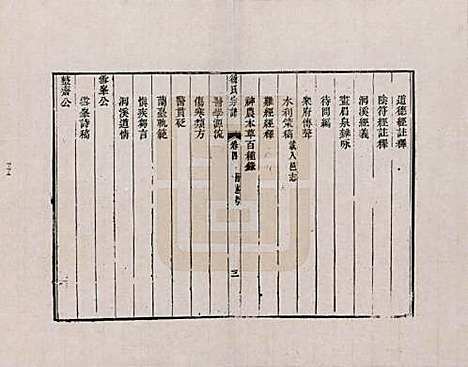 道德經註釋
陰符經註釋
洞溪經義
畫眉泉雜咏
待問編
樂府傳聲
水利策稿 載入邑志
難經經釋
神農本草百種錄
徐氏宗譜
卷四
三
醫學源流
傷寒類方
醫貫砭
蘭臺軌範
慎疾芻言
洄溪道情
雪峯公
雪峯詩稿
堅齋公